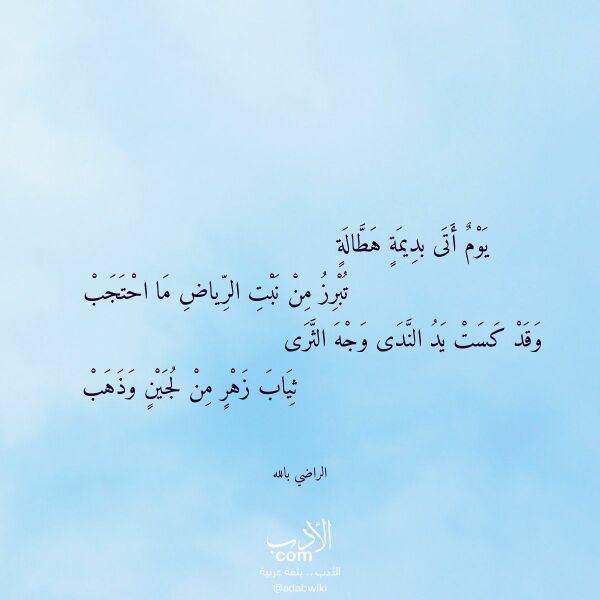 يَوْمٌ أَتَى بدِيمَةٍ هَطَّالَةٍ
تُبْرِزُ مِنْ نَبْتِ الرِّياضِ مَا احْتَجَبْ
وَقَدْ كَسَتْ يَدُ النَّدَى وَجْهَ الثَّرَى
ثِيَابَ زَهْرٍ مِنْ لُجَيْنٍ وَذَهَبْ
الراضي بالله
الأدب
com
الأدب .. بلغة عربية
@adabwiki